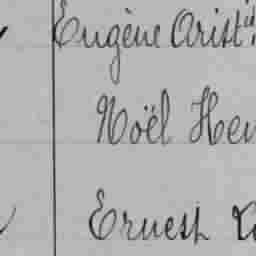 Eugène Arist
Noël Hen
Ernest